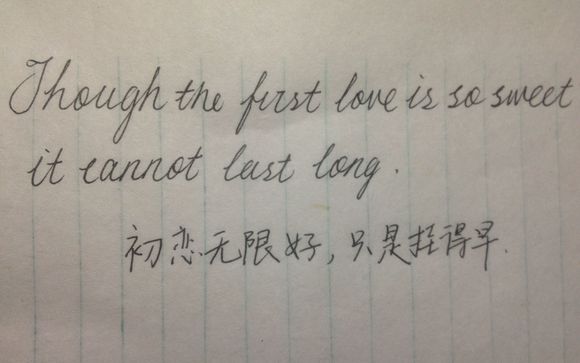 Though the first love is so sweet
it cannot last long.
初恋无限好，只是挂得早.